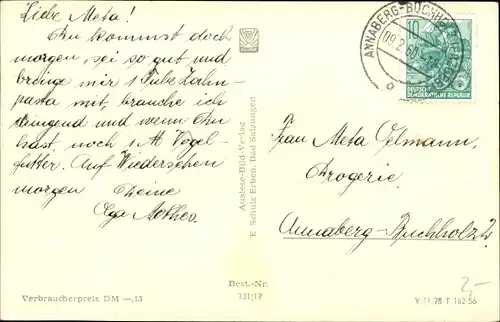 Liebe Meta!
Du kommst doch
morgen, sei so gut und
bringe mir 1 Tube Zahn-
pasta mit, brauche ich
dringend und wenn Ihr
habt, noch 1 Vogel-
futter. Auf Wiedersehen
morgen Deine
Auslese-Bild-Verlag
E. Schulz Erben, Bad Salzungen
ANNABERG-BUCHHOLZ
10
DEUTSCHE
DEMOKRATISCHE REPUBLIK
Frau Meta Oelmann,
Drogerie
Annaberg-Buchholz 2
Best.-Nr.
131/17
Verbraucherpreis DM —,15
V 11/28 T 162 56
2,-